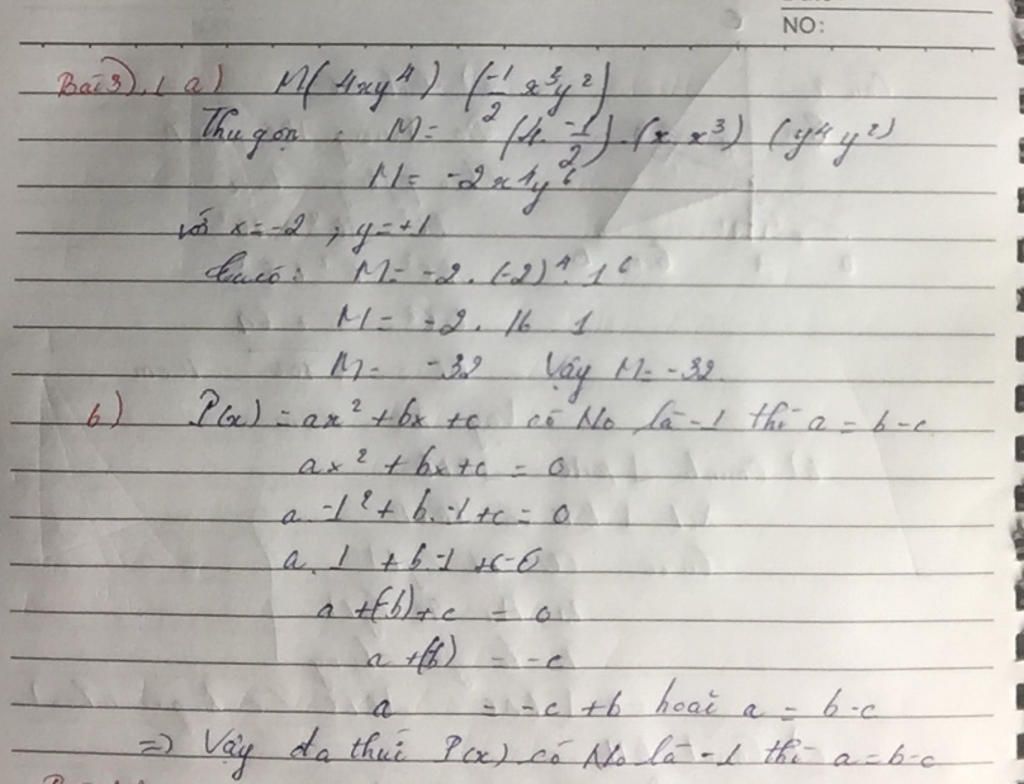 NO:
Bài 3). ( a) M( 4xy⁴) (-1/2 x³y²)
Thu gọn : M = (4. -1/2) . (x. x³) (y⁴ y²)
M = -2x⁴y⁶
với x = -2 , y = +1
ta có : M = -2 . (-2)⁴. 1⁶
M = -2 . 16 1
M = -32 Vậy M = -32
b) P(x) = ax² + bx + c có No là -1 thì a = b - c
ax² + bx + c = 0
a. -1² + b. -1 + c = 0
a. 1 + b -1 + c = 0
a + (-b) + c = 0
a + (-b) = -c
a = -c + b hoặc a = b - c
=> Vậy đa thức P(x) có No là -1 thì a = b - c